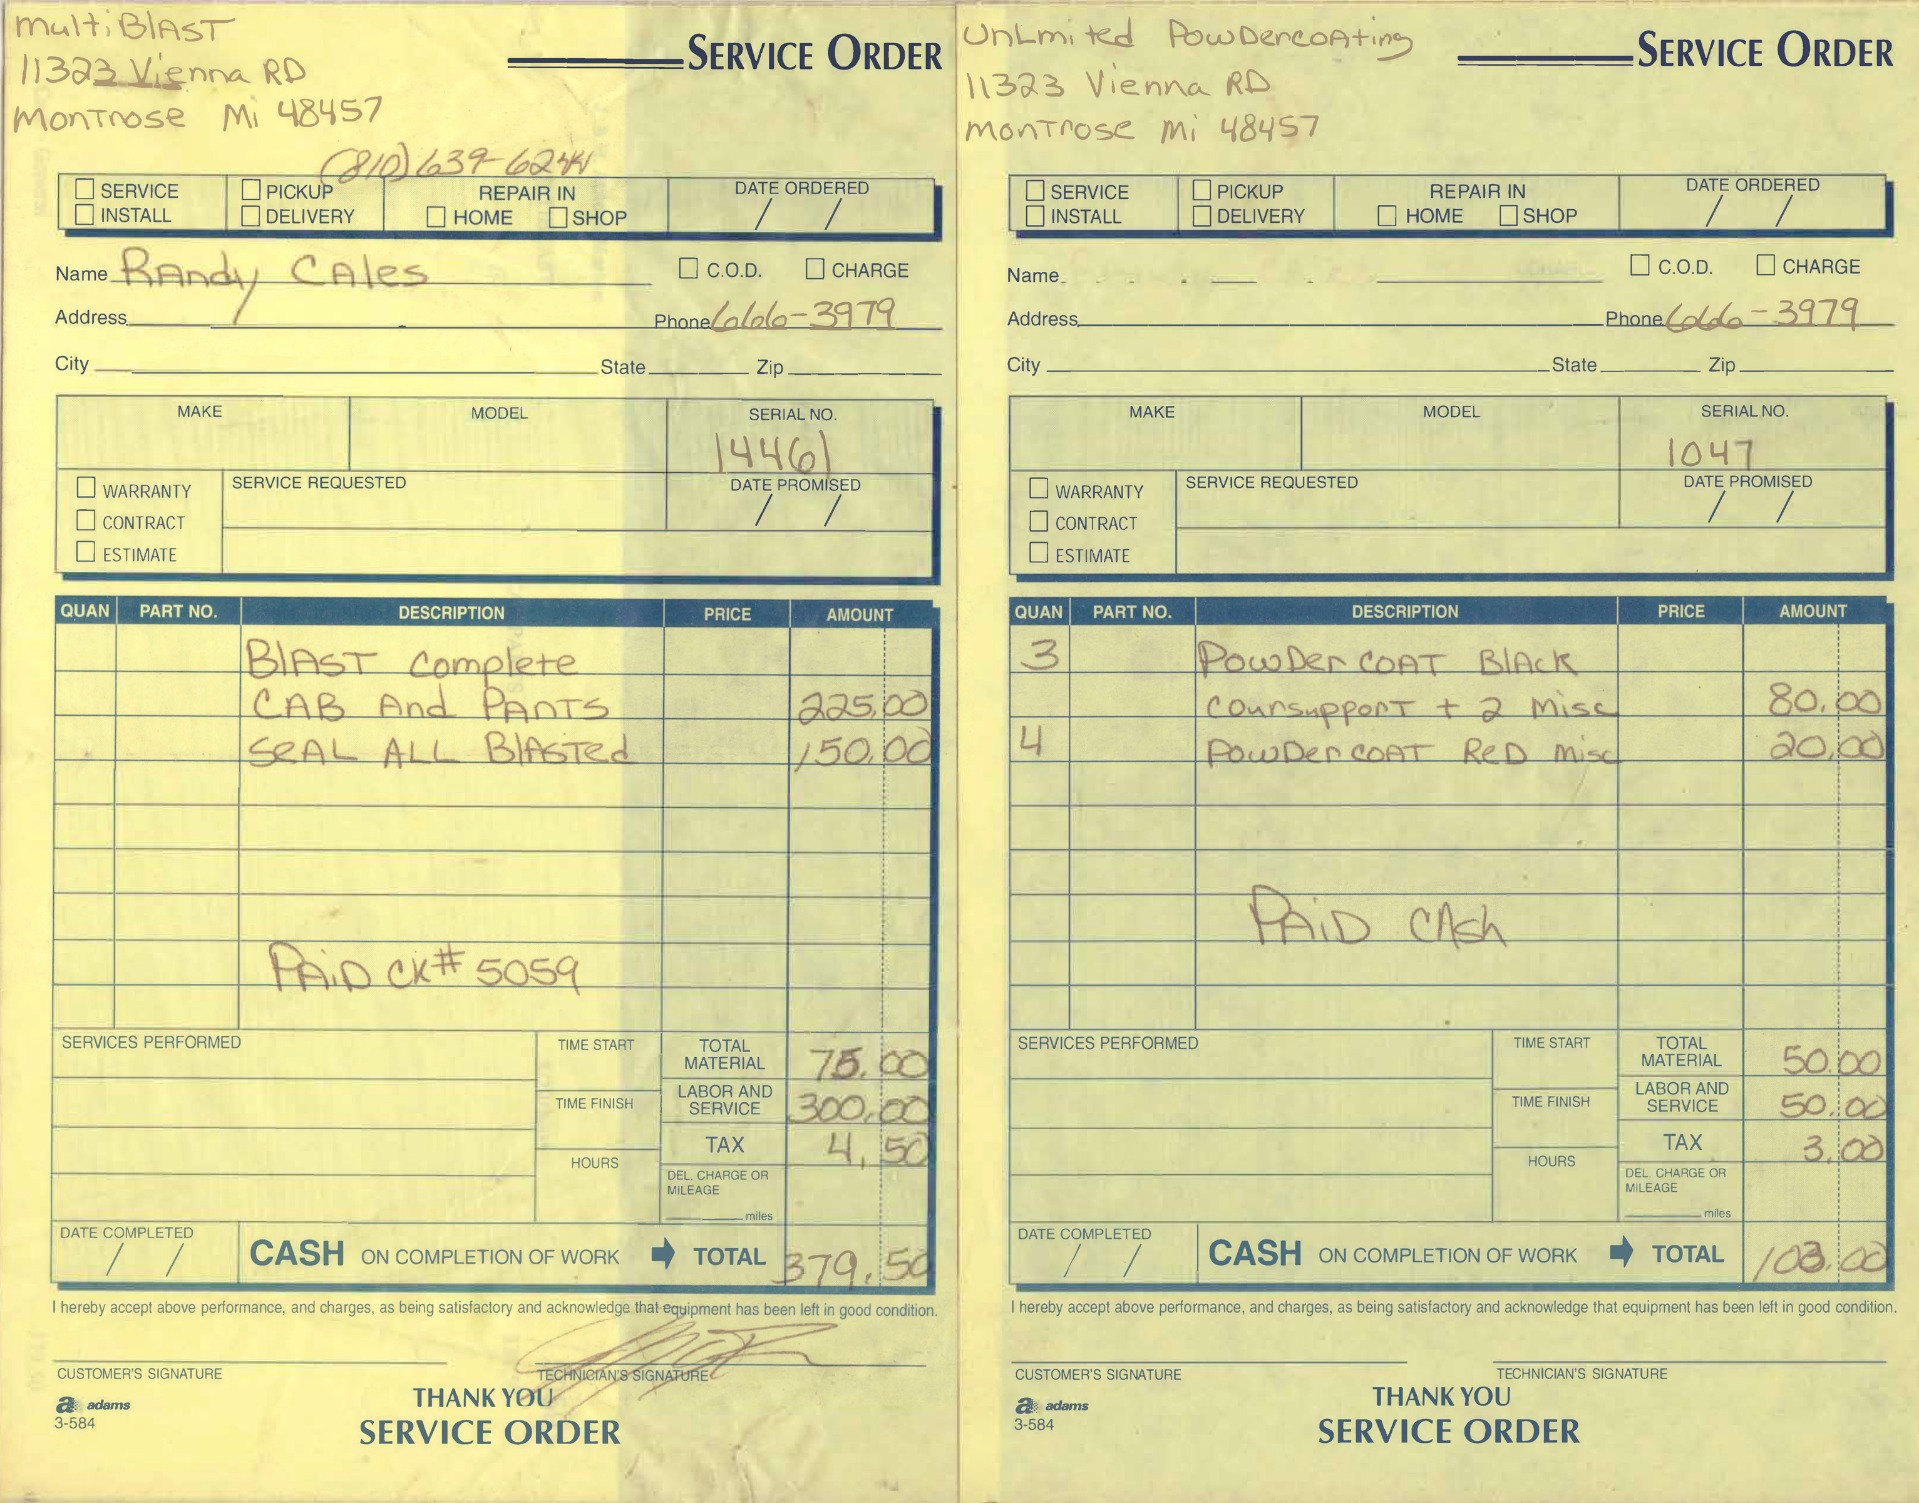 multiBlAST
11323 Vienna RD
MonTrose Mi 48457
(810) 639-6244
SERVICE ORDER
SERVICE
INSTALL
PICKUP
DELIVERY
REPAIR IN
HOME SHOP
DATE ORDERED
/ /
Name RAndy CAles
C.O.D. CHARGE
Address Phone 666-3979
City State Zip
MAKE MODEL SERIAL NO.
14461
WARRANTY
CONTRACT
ESTIMATE
SERVICE REQUESTED
DATE PROMISED
/ /
QUAN PART NO. DESCRIPTION PRICE AMOUNT
BlAST complete
CAB And PANTS 225.00
SeAL ALL BlASTed 150.00
PAiD CK# 5059
SERVICES PERFORMED
TIME START
TIME FINISH
HOURS
TOTAL MATERIAL 75.00
LABOR AND SERVICE 300.00
TAX 4.50
DEL. CHARGE OR
MILEAGE
miles
DATE COMPLETED
/ /
CASH ON COMPLETION OF WORK TOTAL 379.50
I hereby accept above performance, and charges, as being satisfactory and acknowledge that equipment has been left in good condition.
CUSTOMER'S SIGNATURE TECHNICIAN'S SIGNATURE
adams
3-584
THANK YOU
SERVICE ORDER
UnLmited PowDercoAting
11323 Vienna RD
monTrose mi 48457
SERVICE ORDER
SERVICE
INSTALL
PICKUP
DELIVERY
REPAIR IN
HOME SHOP
DATE ORDERED
/ /
Name
C.O.D. CHARGE
Address Phone 666-3979
City State Zip
MAKE MODEL SERIAL NO.
1047
WARRANTY
CONTRACT
ESTIMATE
SERVICE REQUESTED
DATE PROMISED
/ /
QUAN PART NO. DESCRIPTION PRICE AMOUNT
3 PowDer COAT BlAck
+ 2 Misc 80.00
4 PowDer COAT ReD Misc 20.00
PAiD CAsh
SERVICES PERFORMED
TIME START
TIME FINISH
HOURS
TOTAL MATERIAL 50.00
LABOR AND SERVICE 50.00
TAX 3.00
DEL. CHARGE OR
MILEAGE
miles
DATE COMPLETED
/ /
CASH ON COMPLETION OF WORK TOTAL 103.00
I hereby accept above performance, and charges, as being satisfactory and acknowledge that equipment has been left in good condition.
CUSTOMER'S SIGNATURE TECHNICIAN'S SIGNATURE
adams
3-584
THANK YOU
SERVICE ORDER